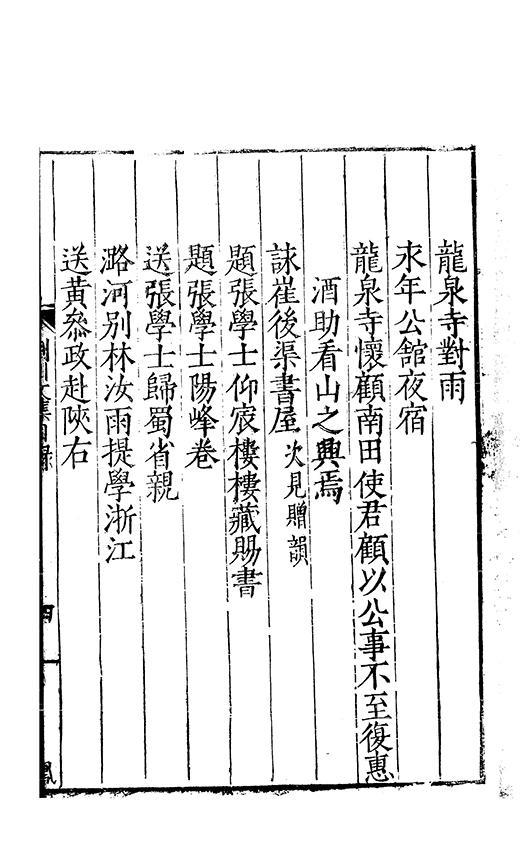 龍泉寺對雨
求年公舘夜宿
龍泉寺懷顧南田使君顧以公事不至復惠
酒助看山之興焉
詠崔後渠書屋次見贈韻
題張學士仰宸樓樓藏賜書
題張學士陽峰卷
送張學士歸蜀省親
潞河别林汝雨提學浙江
送黃叅政赴陝右
文集目録
四